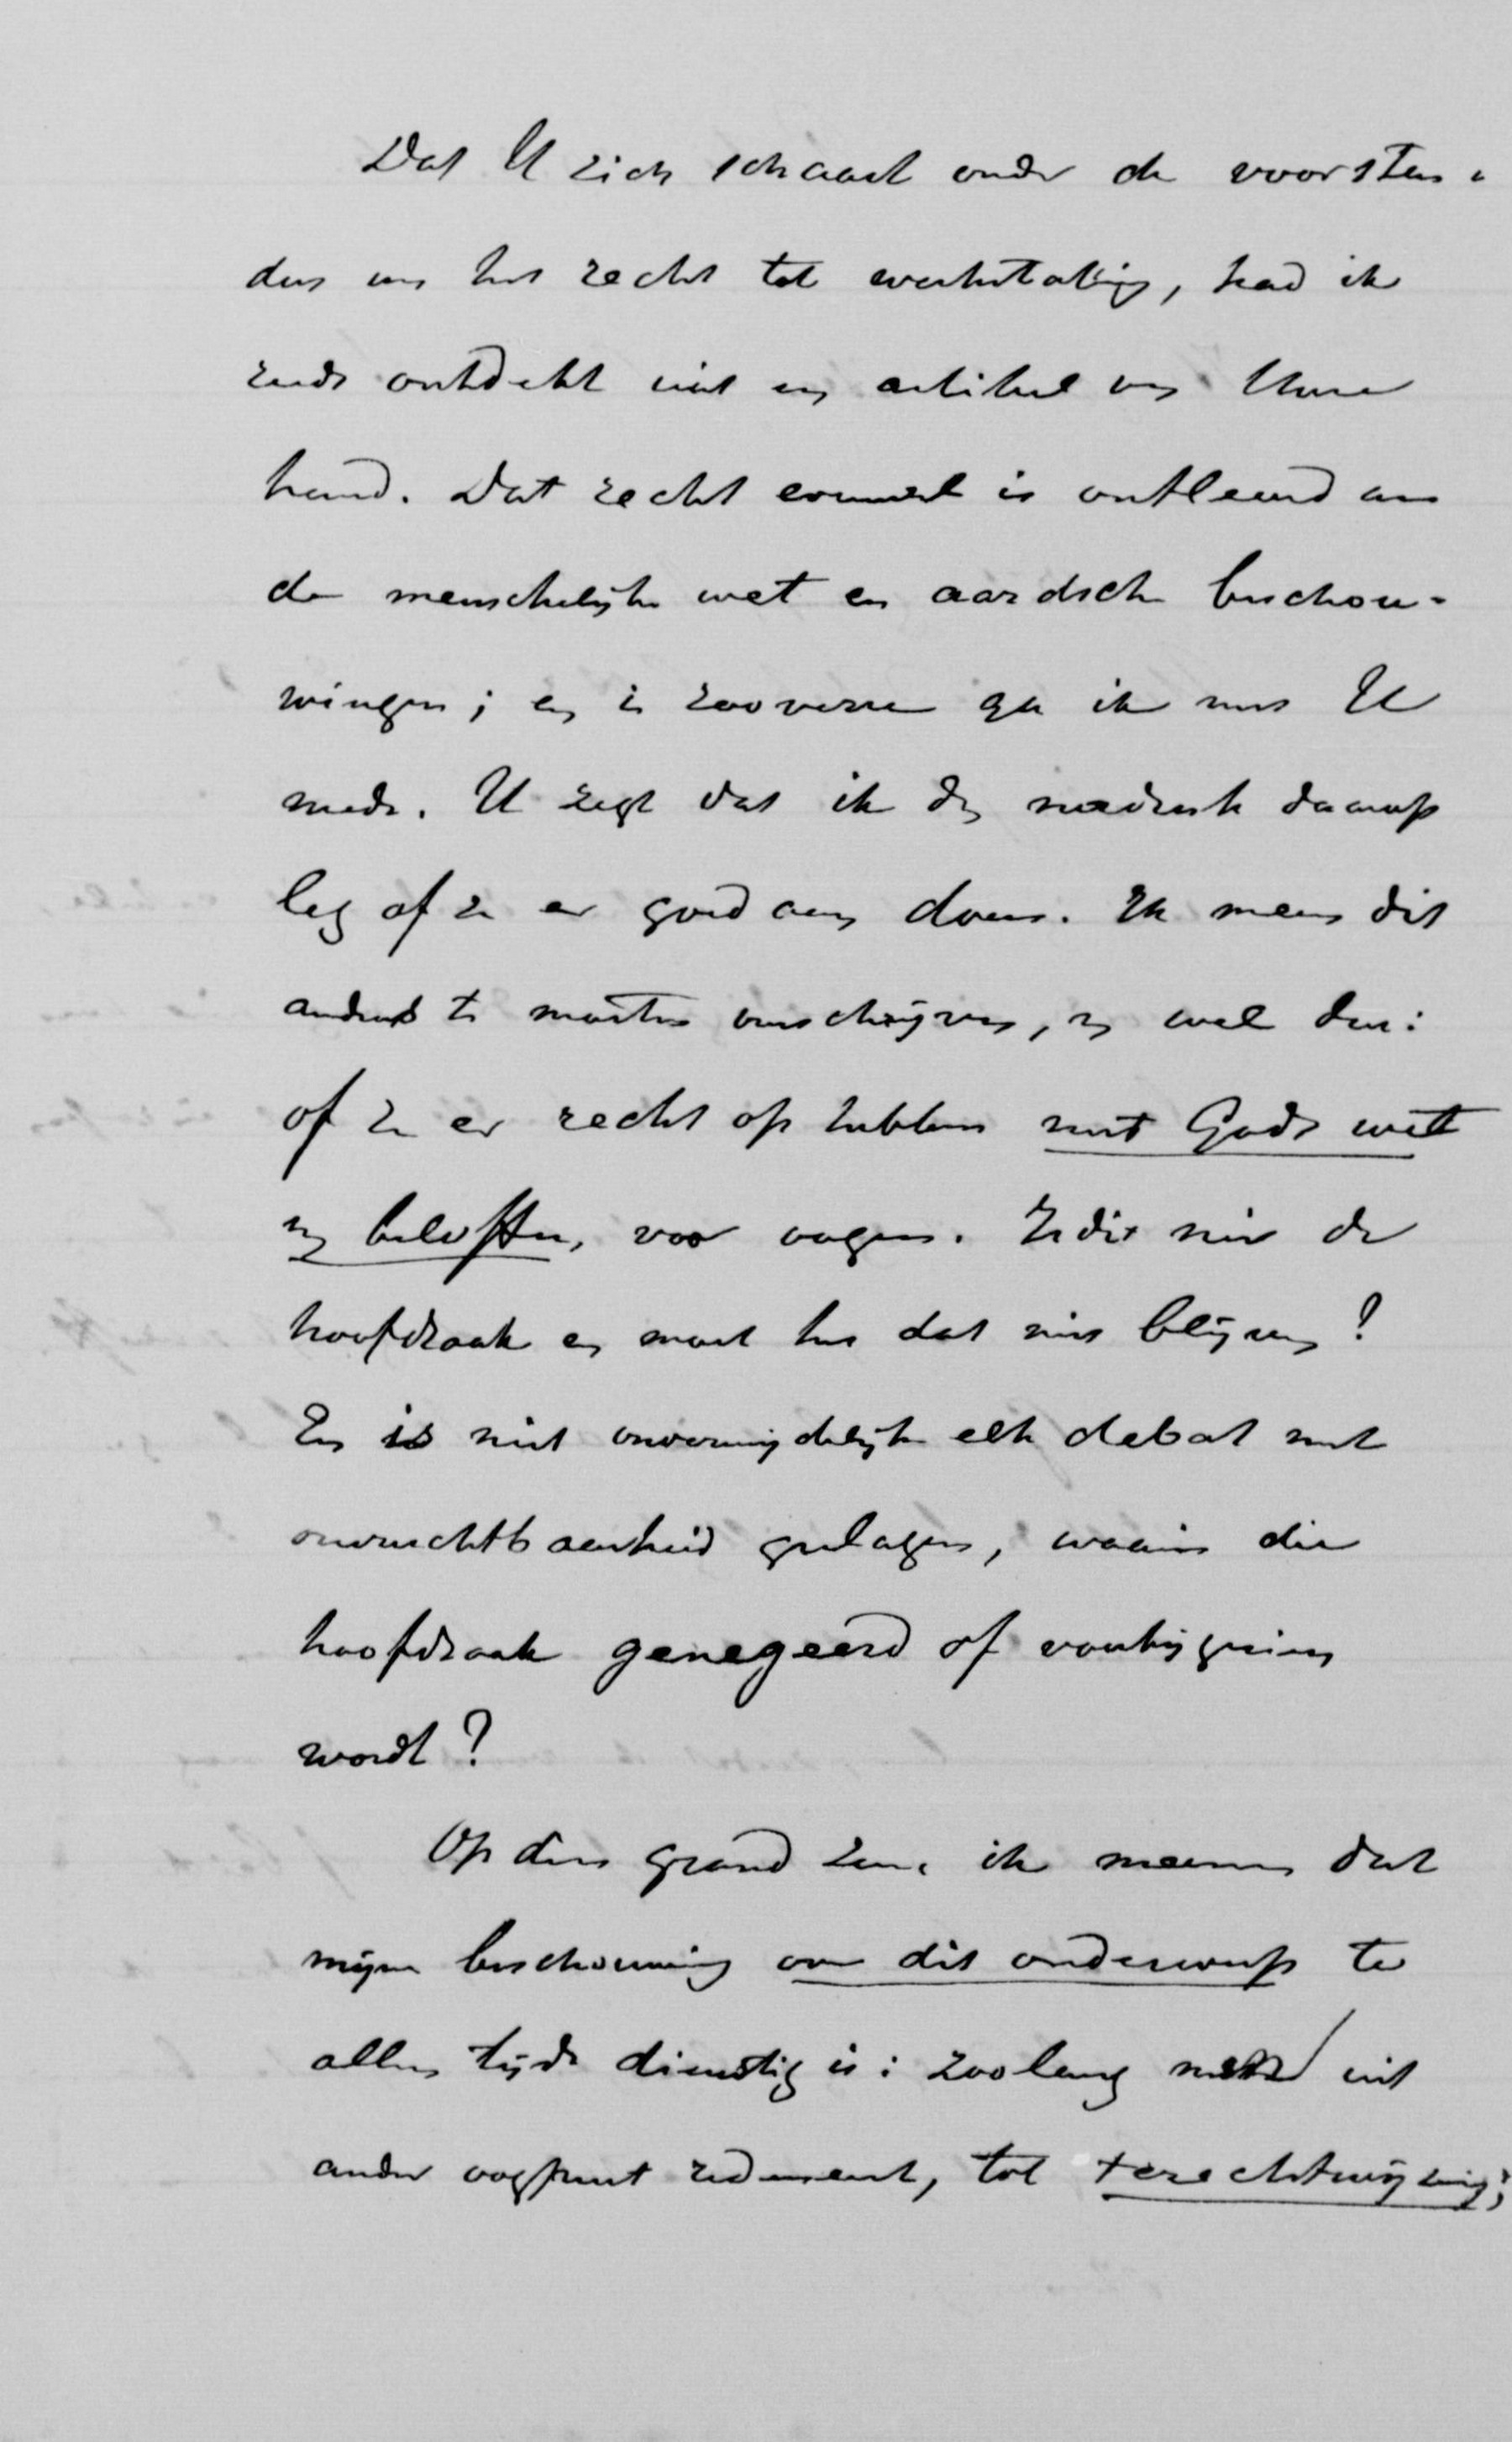 Dat U zich schaart onder de voorstan-
ders van het recht tot werkstaking, had ik
reeds ontdekt uit een artikel van Uwe
hand. Dat recht evenwel is ontleend aan
de menschelijke wet en aardsche beschou-
wingen; en in zooverre ga ik met U
mede. U zegt dat ik den nadruk daarop
leg of ze er goed aan doen. Ik meen dit
anders te moeten omschrijven, en wel dus:
of ze er recht op hebben met Gods wet
en beloften, voor oogen. Is dit niet de
hoofdzaak en moet het dat niet blijven?
En is niet onvermijdelijk elk debat met
onvruchtbaarheid geslagen, waarin die
hoofdzaak genegeerd of voorbijgezien
wordt?
Op dien grond zou ik meenen dat
mijne beschouwing over dit onderwerp te
allen tijde dienstig is: zoolang men uit
ander oogpunt redeneert, tot terechtwijzing;